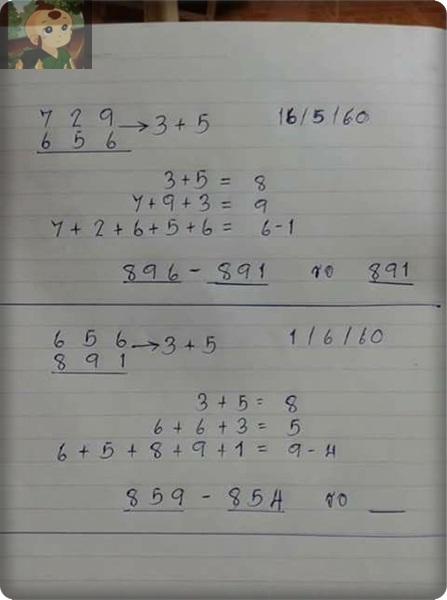 7 2 9 → 3 + 5 16/5/60
6 5 6
3+5 = 8
7+9+3 = 9
7 + 2 + 6 + 5 + 6 = 6-1
896 - 891 รอ 891
6 5 6 → 3 + 5 1/6/60
8 9 1
3 + 5 = 8
6 + 6 + 3 = 5
6 + 5 + 8 + 9 + 1 = 9 - 4
859 - 854 รอ __